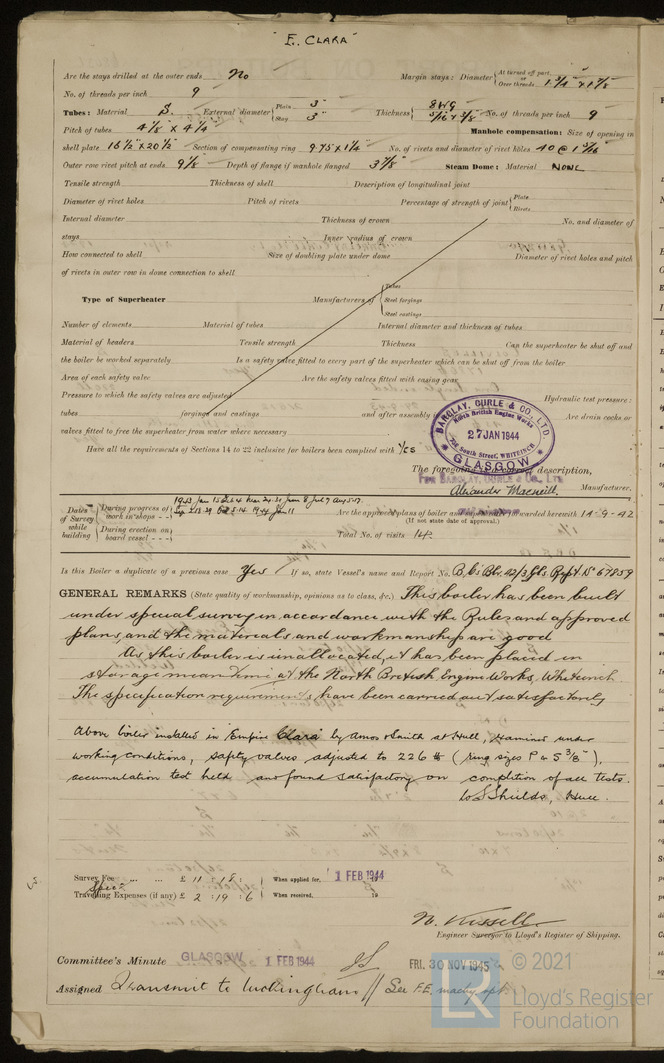 "E. CLARA"
Are the stays drilled at the outer ends No Margin stays: Diameter { At turned off part, or Over threads 1 3/4" x 1 7/8
No. of threads per inch 9
Tubes: Material S. External diameter { Plain 3" Stay 3" Thickness { 8WG 5/16 x 3/8 No. of threads per inch 9
Pitch of tubes 4 1/8 x 4 1/4" Manhole compensation: Size of opening in
shell plate 16 1/2" x 20 1/2" Section of compensating ring 9.75 x 1 1/4" No. of rivets and diameter of rivet holes 40 @ 1 5/16"
Outer row rivet pitch at ends 9 1/8" Depth of flange if manhole flanged 3 7/8" Steam Dome: Material NONE
Tensile strength Thickness of shell Description of longitudinal joint
Diameter of rivet holes Pitch of rivets Percentage of strength of joint { Plate Rivets
Internal diameter Thickness of crown No. and diameter of
stays Inner radius of crown
How connected to shell Size of doubling plate under dome Diameter of rivet holes and pitch
of rivets in outer row in dome connection to shell
Type of Superheater Manufacturers of { Tubes Steel forgings Steel castings
Number of elements Material of tubes Internal diameter and thickness of tubes
Material of headers Tensile strength Thickness Can the superheater be shut off and
the boiler be worked separately Is a safety valve fitted to every part of the superheater which can be shut off from the boiler
Area of each safety valve Are the safety valves fitted with easing gear
Pressure to which the safety valves are adjusted Hydraulic test pressure:
tubes forgings and castings and after assembly in Are drain cocks or
valves fitted to free the superheater from water where necessary
BARCLAY, CURLE & CO., LTD.
North British Engine Works
27 JAN 1944
South Street, WHITEINCH
GLASGOW
Have all the requirements of Sections 14 to 22 inclusive for boilers been complied with Yes
The foregoing is a correct description,
FOR BARCLAY, CURLE & CO., LTD
Alexander Macneill. Manufacturer.
Dates of Survey while building { During progress of work in shops - - 1943 Jan 15 Feb 4 Mar 24.31 June 8 July 9 Aug 5.17.
Sep 2.13.29 Oct 5.14 1944 Jan 11
Are the approved plans of boiler forwarded herewith 14-9-42
(If not state date of approval.)
During erection on board vessel - - - Total No. of visits 14
Is this Boiler a duplicate of a previous case Yes If so, state Vessel's name and Report No. Rept No 67859
GENERAL REMARKS (State quality of workmanship, opinions as to class, &c.) This boiler has been built
under special survey in accordance with the Rules and approved
plans, and the materials and workmanship are good
As this boiler is unallocated, it has been placed in
storage meantime at the North British Engine Works, Whiteinch.
The specification requirements have been carried out satisfactorily
Above boiler installed in "Empire Clara" by Amos & Smith at Hull, examined under
working conditions, safety valves adjusted to 226 lb (ring sizes P & S 3/8"),
accumulation test held and found satisfactory on completion of all tests.
W S Shields, Hull.
Survey Fee ... ... £ 11 : 18 : When applied for, 1 FEB 1944
Spec.
Travelling Expenses (if any) £ 2 : 19 : 6 When received, 19
N. Kissell
Engineer Surveyor to Lloyd's Register of Shipping.
Committee's Minute GLASGOW 1 FEB 1944 FRI. 30 NOV 1945
Assigned Transmit to Wokingham // See F.E. machy rpt.
© 2021
LR
Lloyd's Register
Foundation